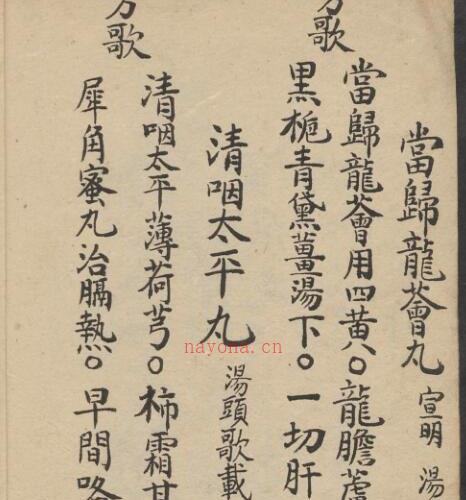 當歸龍薈丸 宣明 湯
方歌
當歸龍薈用四黄。龍膽蘆
黑梔青黛薑湯下。一切肝
清咽太平丸 湯頭歌載
方歌
清咽太平薄荷芎。柿霜甘
犀角蜜丸治膈熱。早間咯
nayona.cn